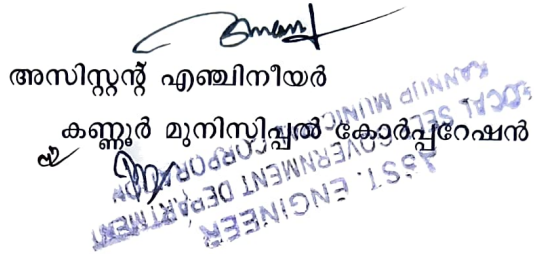 അസിസ്റ്റന്റ് എഞ്ചിനീയർ
കണ്ണൂർ മുനിസിപ്പൽ കോർപ്പറേഷൻ
ASST. ENGINEER
LOCAL SELF GOVERNMENT DEPARTMENT
KANNUR MUNICIPAL CORPORATION